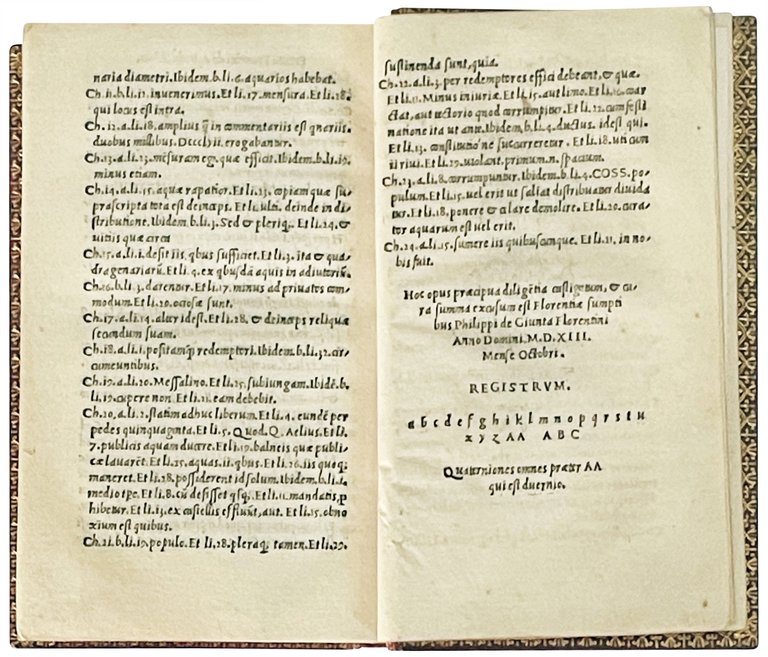 naria diametri. Ibidem. b. li. 6. aquarios habebat.
Ch. 11. b. li. 11. invenerimus. Et li. 17. mensura. Et li. 28.
qui locus est intra.
Ch. 12. a. li. 18. amplius q̃ in commentariis est qnariis
duobus millibus. Dcccclvii. erogabantur.
Ch. 13. a. li. 23. mēsuram eg. quæ efficit. Ibidem. b. li. 19.
minus etiam.
Ch. 14. a. li. 15. aquæ rapatior. Et li. 23. copiam quæ su/
prascripta tota est deinceps. Et li. ulti. deinde in di/
stributione. Ibidem. b. li. 3. Sed & pleriq;. Et li. 24. &
uitiis quæ circa
Ch. 15. a. li. 1. desit iis, qbus sufficiet. Et li. 3. ita & qua/
dragenariū. Et li. 4. ex qbusdā aquis in adiutoriū.
Ch. 16. b. li. 3. darentur. Et li. 17. minus ad privatos com/
modum. Et li. 20. ociosæ sunt.
Ch. 17. a. li. 14. alar id est. Et li. 28. & deinceps reliquæ
secundum suam.
Ch. 18. a. li. 1. positamq; redemptori. Ibidem. b. li. 32. cir/
cumeuntibus.
Ch. 19. a. li. 20. Messalino. Et li. 25. subiungam. Ibidē. b.
li. 1. cupere non. Et li. 21. eam debebit.
Ch. 20. a. li. 2. statim adhuc liberum. Et li. 4. eundē per
pedes quinquaginta. Et li. 5. Quod. Q. Aelius. Et li.
7. publicis aquam ducere. Et li. 19. balneis quæ publi/
cæ lavarēt. Et li. 25. aquas. ii. qbus. Et li. 26. iis quoq;
maneret. Et li. 28. possiderent id solum. Ibidem. b. li. 1.
medio tpe. Et li. 8. cū desisset qsq;. Et li. 11. mandatis, p
hibetur. Et li. 13. ex castellis effluūt, aut. Et li. 25. obno
xium est quibus.
Ch. 21. b. li. 19. populo. Et li. 28. pleraq; tamen. Et li. 29.
sustinenda sunt, quia.
Ch. 22. a. li. 3. per redemptores effici debeant, & quæ.
Et li. 11. Minus iniuriæ. Et li. 15. aut limo. Et li. 16. coar
ctat, aut tectorio quod corrumpitur. Et li. 22. cum festi
natione ita ut ante. Ibidem. b. li. 4. ductus. id est qui.
Et li. 13. constitutio ne succurreretur. Et li. 18. uti cum
ii rivi. Et li. 29. violant. primum. n. spacium.
Ch. 23. a. li. 8. corrumpuntur. Ibidem. b. li. 4. COSS. po/
pulum. Et li. 15. vel erit ut saliat distribuatur dividā
tur. Et li. 18. ponere & alare demolire. Et li. 20. cura/
tor aquarum est vel erit.
Ch. 24. a. li. 15. sumere iis quibuscunque. Et li. 21. in no/
bis fuit.
Hoc opus præcipua diligētia castigatum, & cu/
ra summa excusum est Florentiæ sumpti
bus Philippi de Giunta Florentini
Anno Domini. M. D. XIII.
Mense Octobri.
REGISTRVM.
a b c d e f g h i k l m n o p q r s t u
x y z A A A B C
Quaterniones omnes præter AA
qui est duernio.